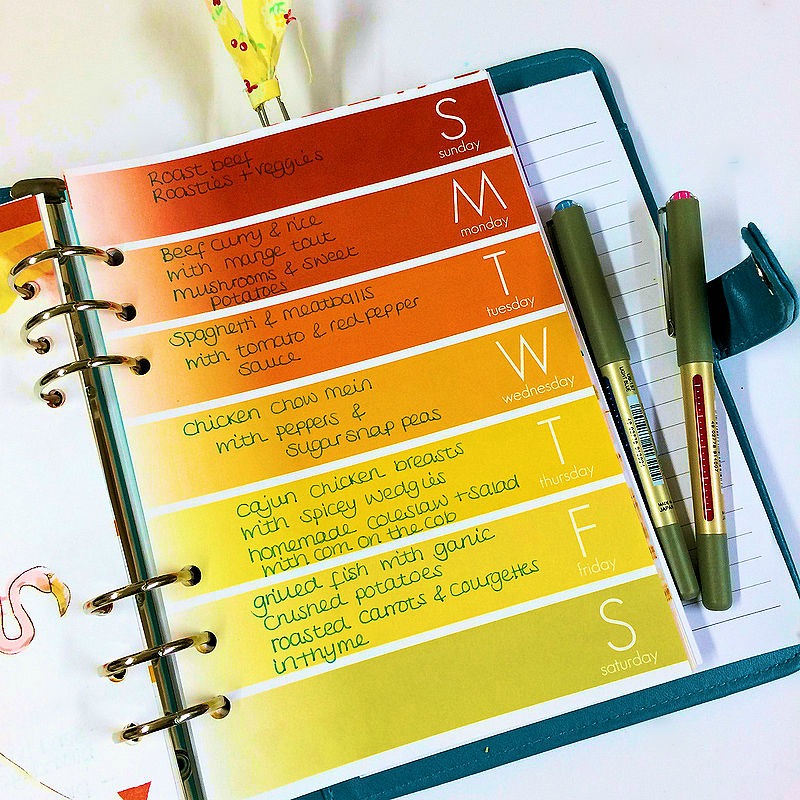 S
sunday
Roast beef
Roasties + veggies
M
monday
Beef curry & rice
with mange tout
mushrooms & sweet
potatoes
T
tuesday
Spaghetti & meatballs
with tomato & red pepper
sauce
W
wednesday
chicken chow mein
with peppers &
sugar snap peas
T
thursday
cajun chicken breasts
with spicey wedgies
homemade coleslaw + salad
with corn on the cob
F
friday
grilled fish with garlic
crushed potatoes
roasted carrots & courgettes
in thyme
S
saturday
MADE IN
JAPAN